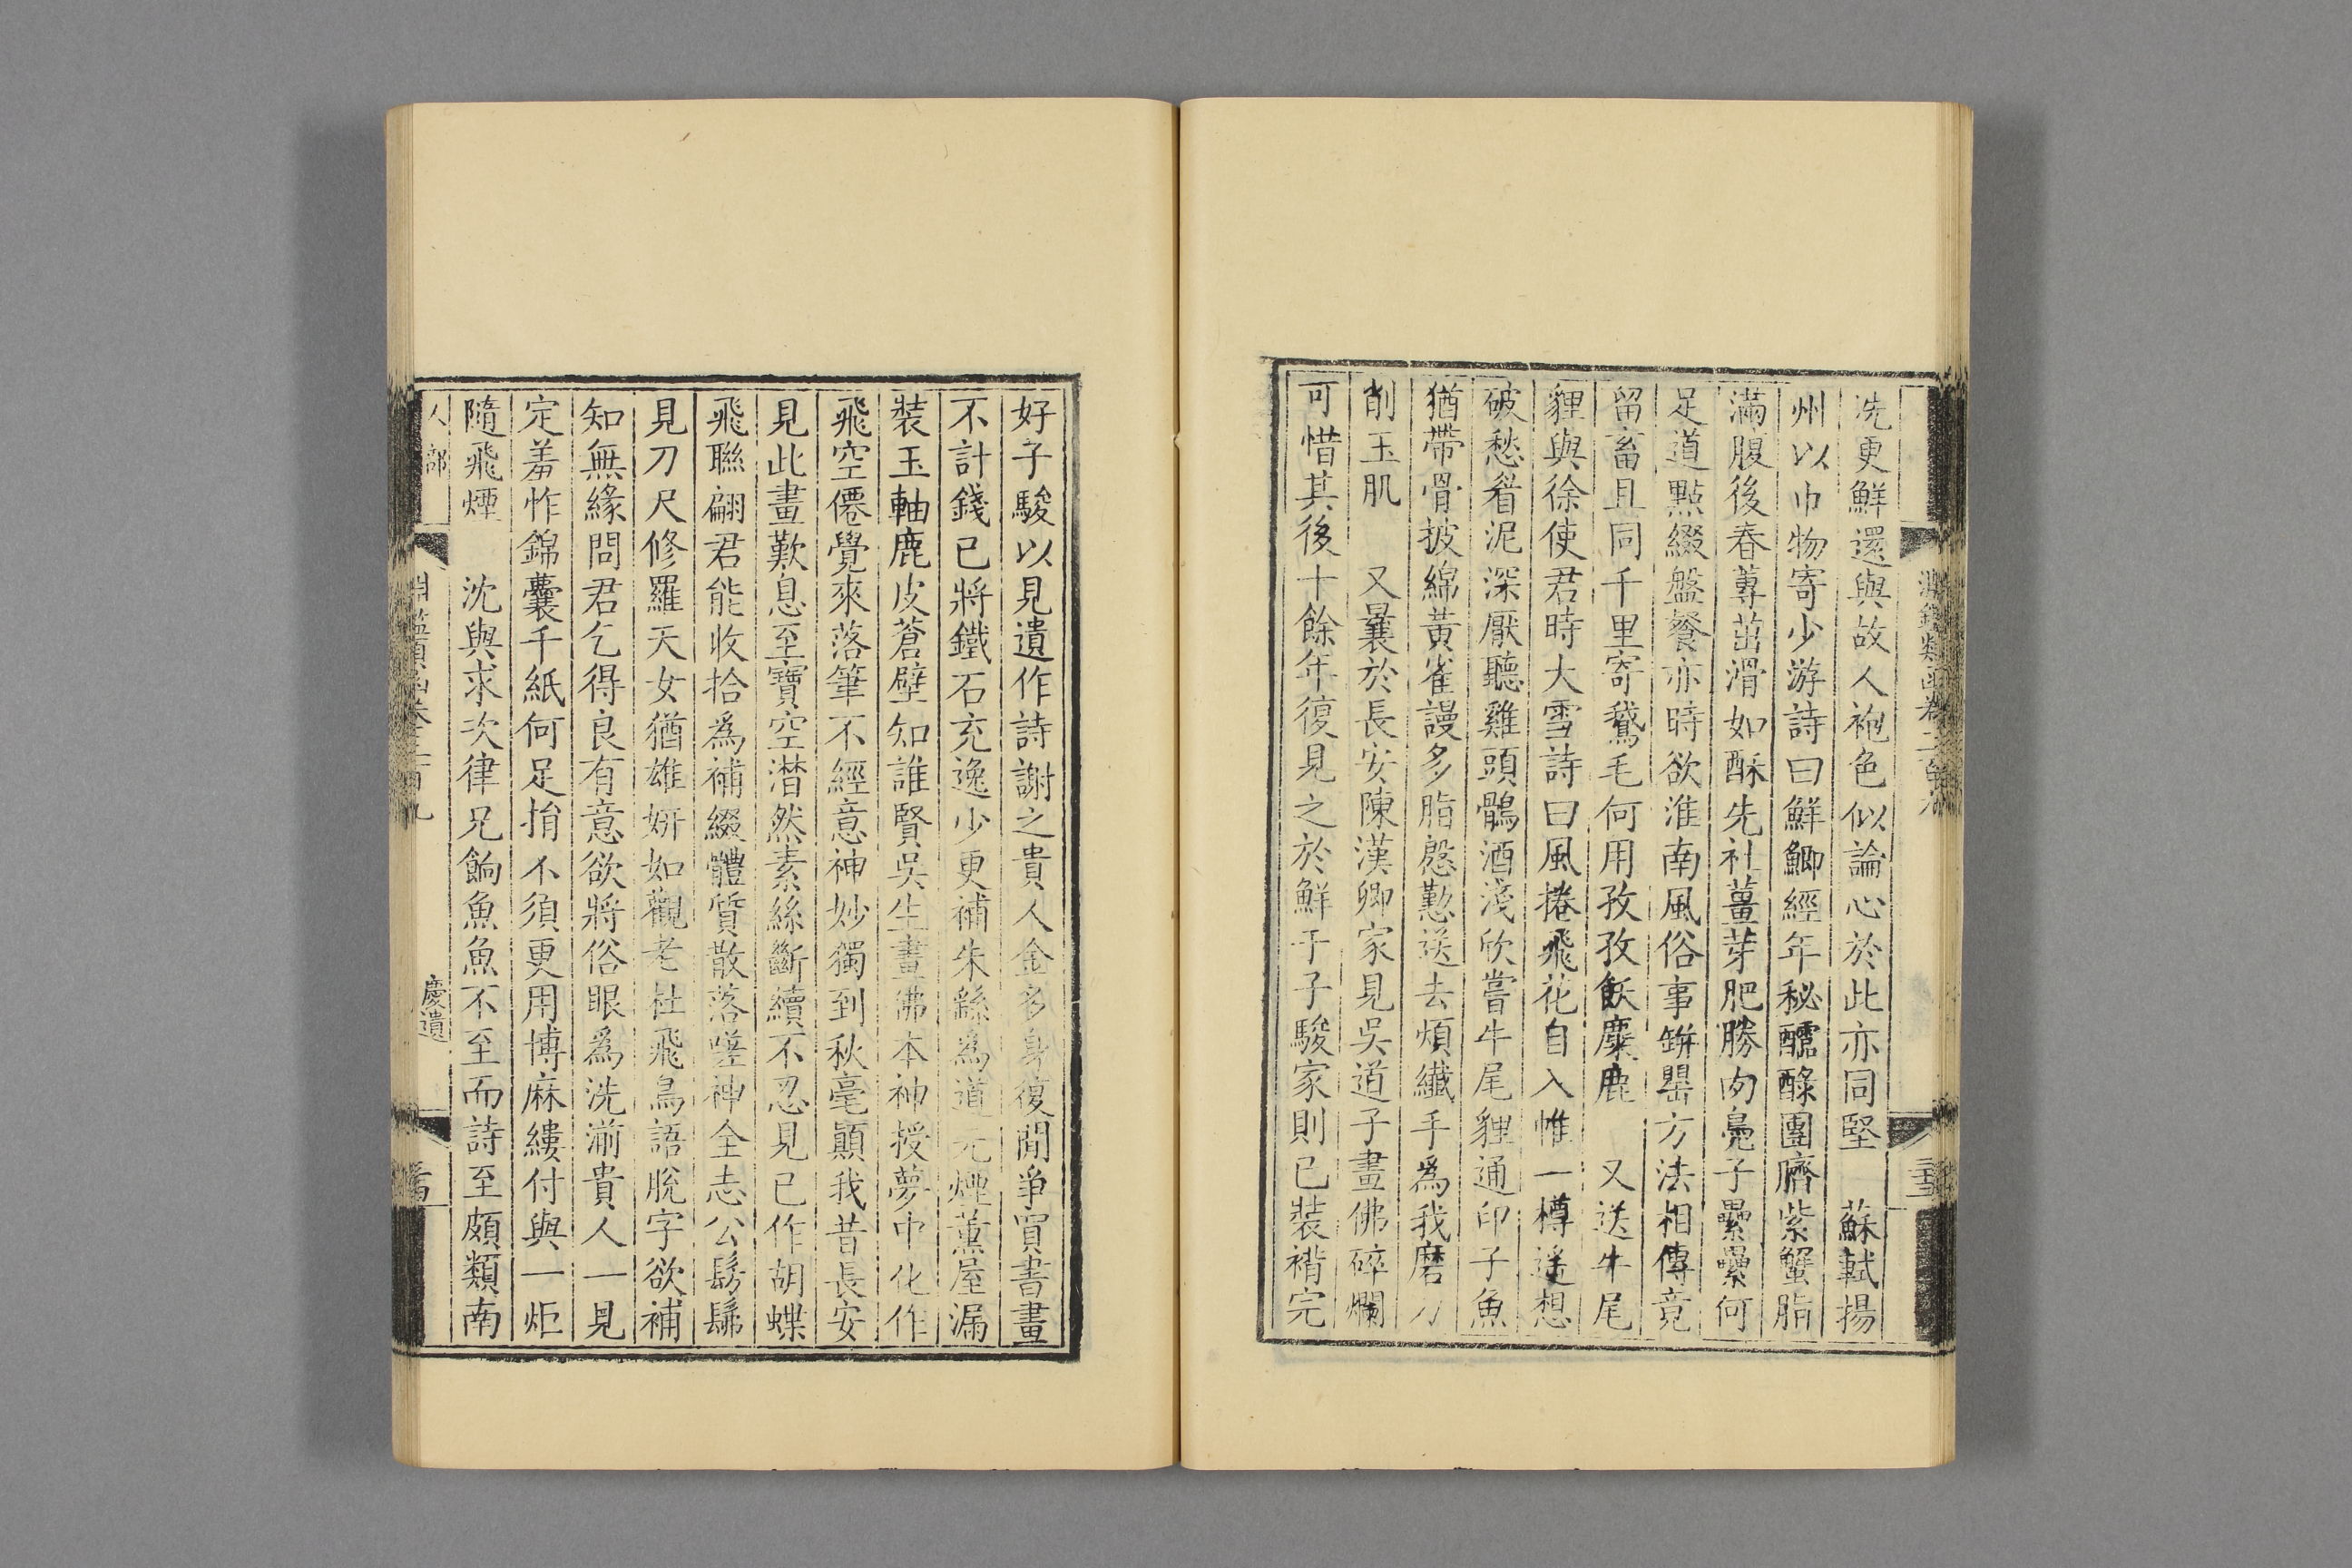 洗更鮮還與故人袍色似論心於此亦同堅　蘇軾揚
州以巾物寄少游詩曰鮮鯽經年秘醽醁團臍紫蟹脂
滿腹後春蓴茁滑如酥先社薑芽肥勝肉鳧子纍纍何
足道點綴盤餐亦時欲淮南風俗事缾罌方法相傳竟
留畜且同千里寄鵞毛何用孜孜飫麋鹿　又送牛尾
貍與徐使君時大雪詩曰風捲飛花自入帷一樽遙想
破愁眉泥深厭聽雞頭鶻酒淺欣嘗牛尾貍通印子魚
猶帶骨披綿黃雀謾多脂慇懃送去煩纖手爲我磨刀
削玉肌　又曩於長安陳漢卿家見吳道子畫佛碎爛
可惜其後十餘年復見之於鮮于子駿家則已裝褙完
好子駿以見遺作詩謝之貴人金多身復閒爭買書畫
不計錢已將鐵石充逸少更補朱繇為道元煙薰屋漏
裝玉軸鹿皮蒼璧知誰賢吳生畫佛本神授夢中化作
飛空僊覺來落筆不經意神妙獨到秋毫顚我昔長安
見此畫歎息至寶空潸然素絲斷續不忍見已作胡蝶
飛聯翩君能收拾爲補綴體質散落嗟神全志公髣髴
見刀尺修羅天女猶雄妍如觀老杜飛鳥語脫字欲補
知無緣問君乞得良有意欲將俗眼爲洗湔貴人一見
定羞怍錦囊千紙何足捎不須更用博麻縷付與一炬
隨飛煙　沈與求次律兄餉魚魚不至而詩至頗類南
人部
淵鑑類函卷三百九
慶遺